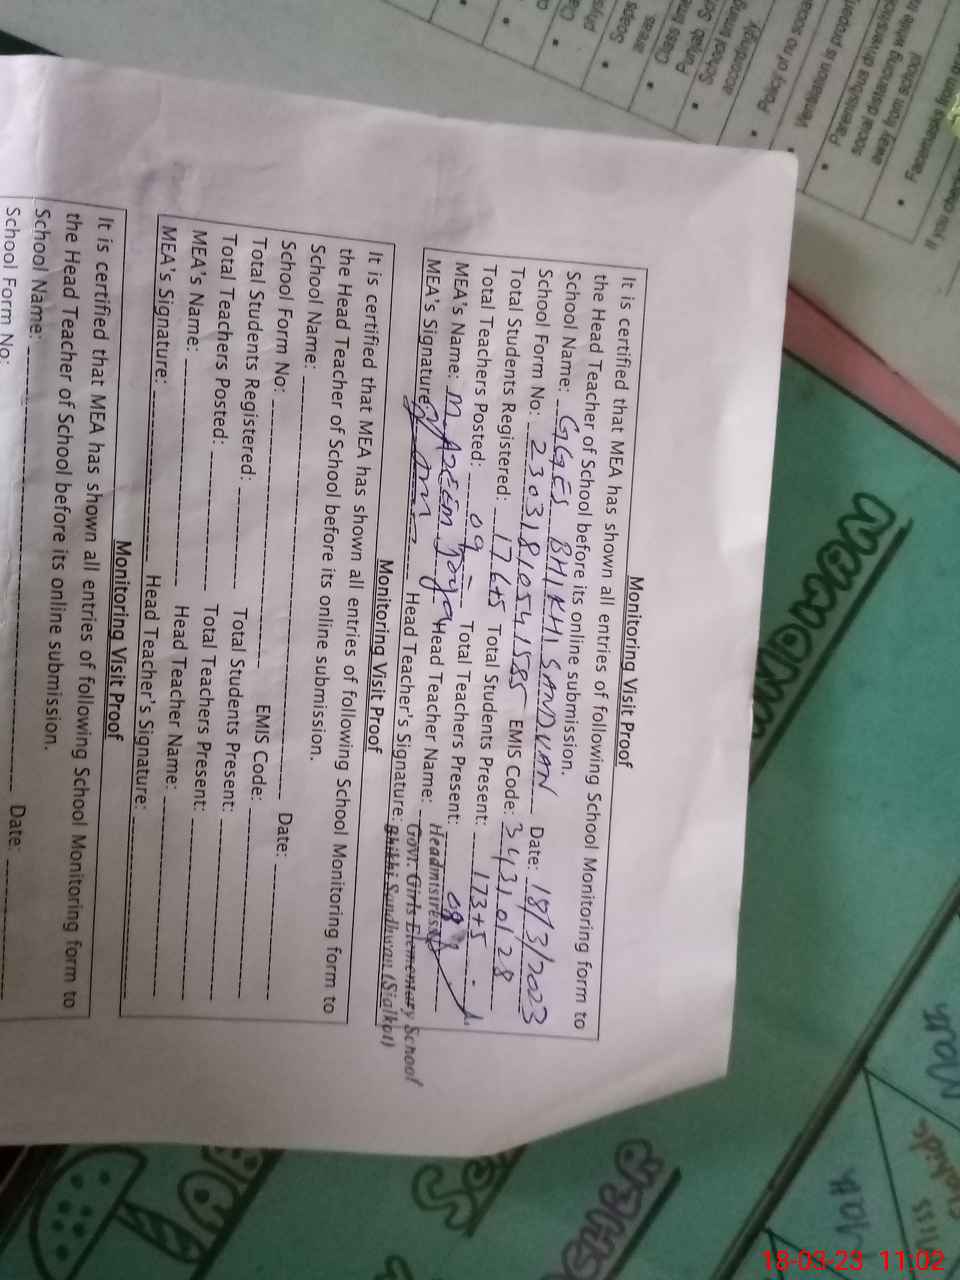 Monitoring Visit Proof
It is certified that MEA has shown all entries of following School Monitoring form to
the Head Teacher of School before its online submission.
School Name: GGES BHIKHI SANDVAN Date: 18/3/2023
School Form No: 23031810541585 EMIS Code: 34310128
Total Students Registered: 176+5 Total Students Present: 173+5
Total Teachers Posted: 09 Total Teachers Present: 08
MEA's Name: M AZEEM Head Teacher Name:
MEA's Signature: Head Teacher's Signature:
Headmistress
Govt. Girls Elementary School
Bhikhi Sandhwan (Sialkot)
Monitoring Visit Proof
It is certified that MEA has shown all entries of following School Monitoring form to
the Head Teacher of School before its online submission.
School Name: Date:
School Form No: EMIS Code:
Total Students Registered: Total Students Present:
Total Teachers Posted: Total Teachers Present:
MEA's Name: Head Teacher Name:
MEA's Signature: Head Teacher's Signature:
Monitoring Visit Proof
It is certified that MEA has shown all entries of following School Monitoring form to
the Head Teacher of School before its online submission.
School Name: Date:
School Form No:
18-03-23 11:02